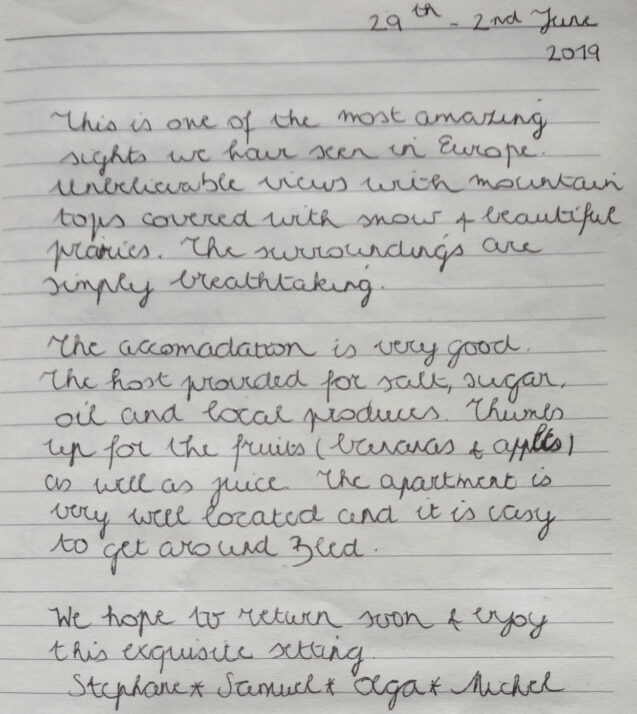 29th - 2nd June
2019
This is one of the most amazing
sights we have seen in Europe.
Unbelievable views with mountain
tops covered with snow & beautiful
prairies. The surroundings are
simply breathtaking.
The accomadation is very good.
The host provided for salt, sugar,
oil and local produces. Thumbs
up for the fruits (bananas & apples)
as well as juice. The apartment is
very well located and it is easy
to get around Bled.
We hope to return soon & enjoy
this exquisite setting
Stephane* Samuel* Olga* Michel